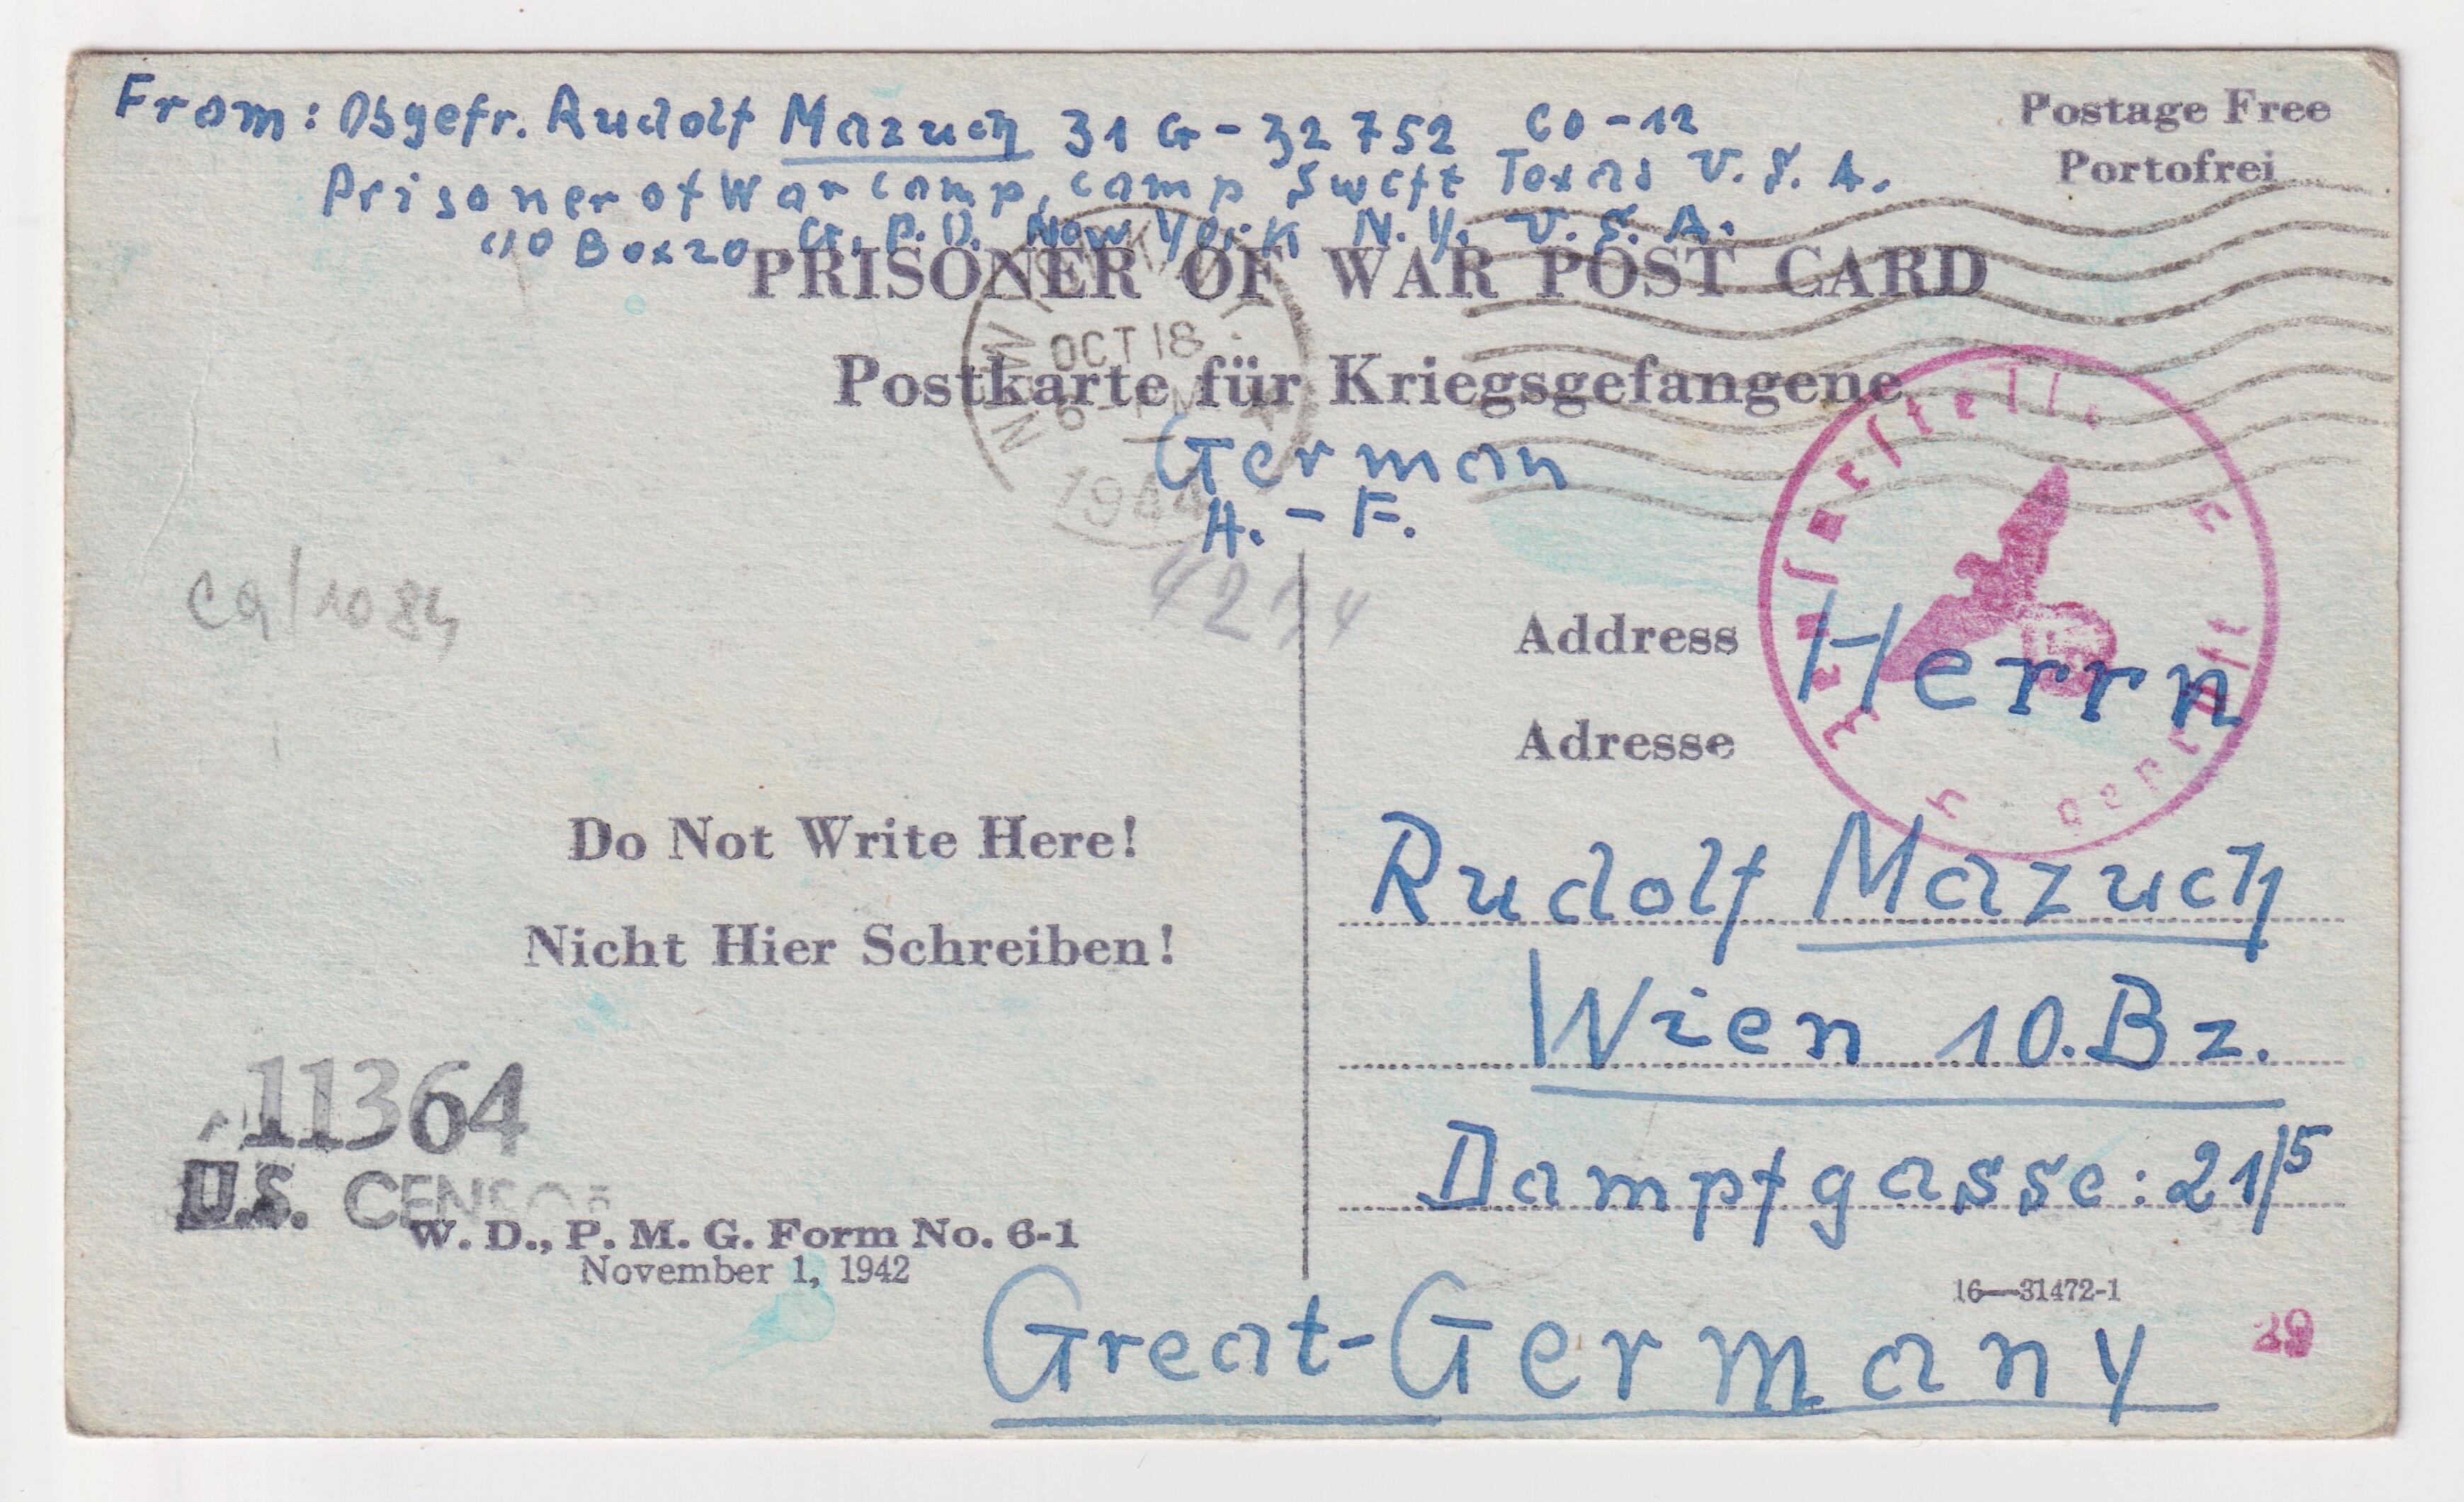 From: Obgefr. Rudolf Mazuch 31 G - 32 752 CO - 12
Prisoner of War camp, camp Swift Texas U. S. A.
c/o Box 20 G. P. O. New York N. Y. U. S. A.
Postage Free
Portofrei
PRISONER OF WAR POST CARD
Postkarte für Kriegsgefangene
NEW
OCT 18
6 - PM
1944
German
A. - F.
Ca/1084
Address
Adresse
Herrn
Rudolf Mazuch
Wien 10. Bz.
Dampfgasse: 21/5
Great-Germany
Do Not Write Here!
Nicht Hier Schreiben!
11364
U.S. CENSOR
W. D., P. M. G. Form No. 6-1
November 1, 1942
16—31472-1
29